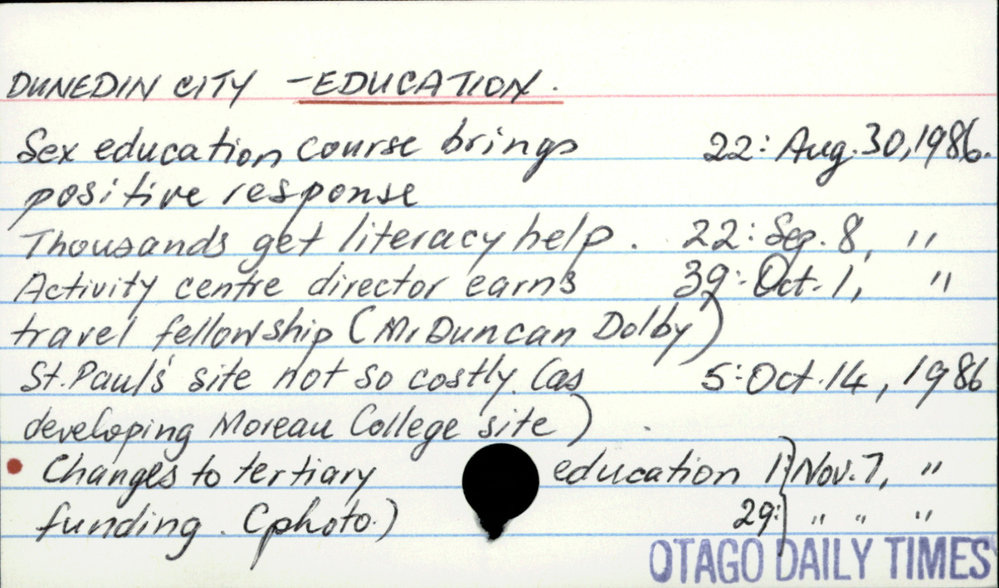 DUNEDIN CITY - EDUCATION.
Sex education course brings 22: Aug. 30, 1986.
positive response
Thousands get literacy help. 22: Sep. 8, "
Activity centre director earns 39: Oct. 1, "
travel fellowship (Mr Duncan Dolby)
St. Paul's site not so costly (as 5: Oct. 14, 1986
developing Moreau College site)
• Changes to tertiary education 1: Nov. 7, "
funding. (photo.) 29: " " "
OTAGO DAILY TIMES